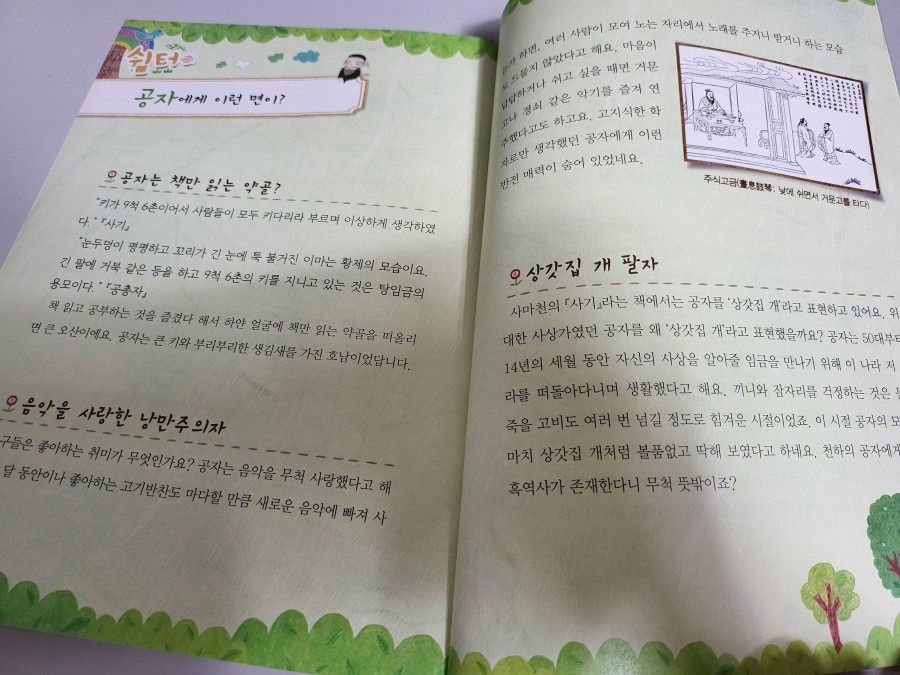 쉼터
공자에게 이런 면이?
공자는 책만 읽는 약골?
"키가 9척 6촌이어서 사람들이 모두 키다리라 부르며 이상하게 생각하였
다." 『사기』
"눈두덩이 평평하고 꼬리가 긴 눈에 툭 불거진 이마는 황제의 모습이요.
긴 팔에 거북 같은 등을 하고 9척 6촌의 키를 지니고 있는 것은 탕임금의
용모이다." 『공총자』
책 읽고 공부하는 것을 즐겼다 해서 하얀 얼굴에 책만 읽는 약골을 떠올리
면 큰 오산이에요. 공자는 큰 키와 부리부리한 생김새를 가진 호남이었답니다.
음악을 사랑한 낭만주의자
구들은 좋아하는 취미가 무엇인가요? 공자는 음악을 무척 사랑했다고 해
달 동안이나 좋아하는 고기반찬도 마다할 만큼 새로운 음악에 빠져 사
하면, 여러 사람이 모여 노는 자리에서 노래를 주거니 받거니 하는 모습
도 드물지 않았다고 해요. 마음이
답답하거나 쉬고 싶을 때면 거문
고나 경쇠 같은 악기를 즐겨 연
주했다고도 하고요. 고지식한 학
자로만 생각했던 공자에게 이런
반전 매력이 숨어 있었네요.
주식고금(晝息鼓琴: 낮에 쉬면서 거문고를 타다)
상갓집 개 팔자
사마천의 『사기』라는 책에서는 공자를 '상갓집 개'라고 표현하고 있어요. 위
대한 사상가였던 공자를 왜 '상갓집 개'라고 표현했을까요? 공자는 50대부터
14년의 세월 동안 자신의 사상을 알아줄 임금을 만나기 위해 이 나라 저
라를 떠돌아다니며 생활했다고 해요. 끼니와 잠자리를 걱정하는 것은
죽을 고비도 여러 번 넘길 정도로 힘겨운 시절이었죠. 이 시절 공자의 모
마치 상갓집 개처럼 볼품없고 딱해 보였다고 하네요. 천하의 공자에게
흑역사가 존재한다니 무척 뜻밖이죠?